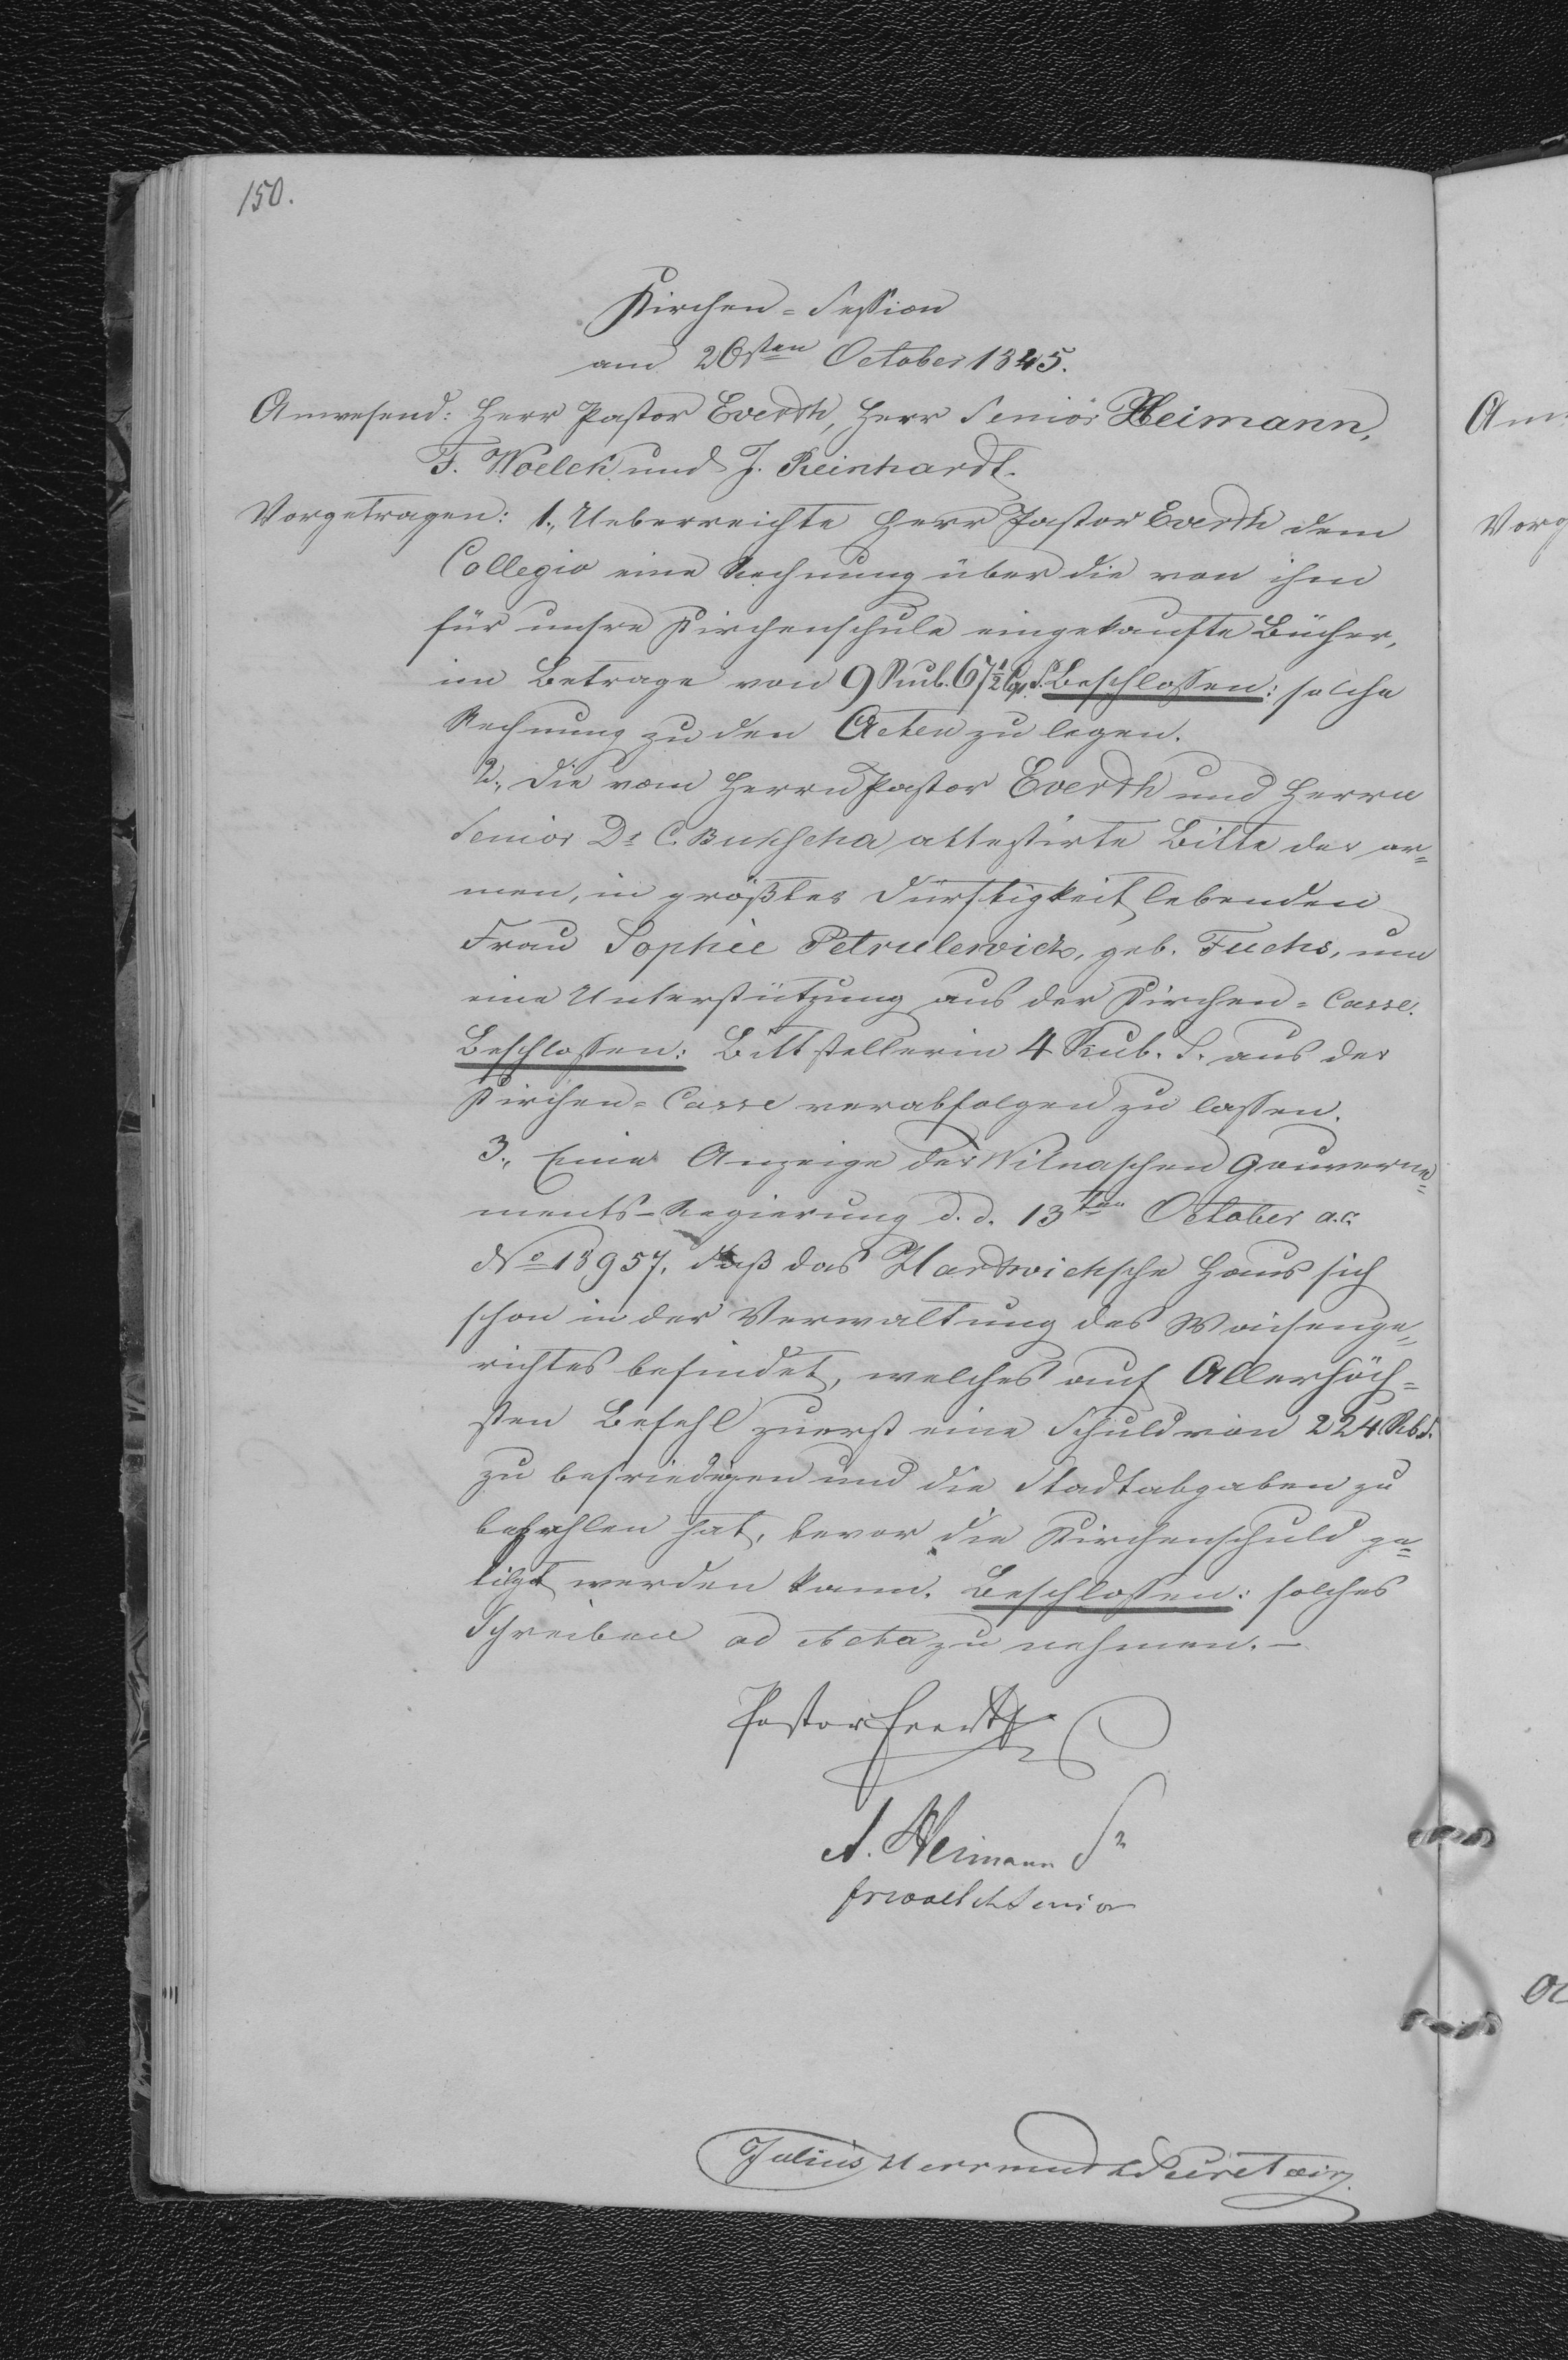 150.
Kirchen-Session
am 26sten October 1845.
Anwesend: Herr Pastor Everth, Herr Senior Heimann,
F. Woelck und J. Reinhardt.
Vorgetragen: 1., Ueberreichte Herr Pastor Everth dem
Collegio eine Rechnung über die von ihm
für unsre Kirchenschule eingekaufte Bücher,
im Betrage von 9 Rub. 67½ Cop. S. Beschlossen: solche
Rechnung zu den Acten zu legen.
2., Die vom Herrn Pastor Everth und Herrn
Senior Dr C. attestirte Bitte der ar=
men, in größter Dürftigkeit lebenden
Frau Sophie Petrulewicz, geb. Fuchs, um
eine Unterstützung aus der Kirchen=Casse.
Beschlossen: Bittstellerin 4 Rub. S. aus der
Kirchen=Casse verabfolgen zu lassen.
3., Eine Anzeige der Wilnaschen Gouverne=
ments-Regierung d. d. 13ten October a. c.
No 13957, daß das Hartwichsche Haus sich
schon in der Verwaltung des Waisenge=
richtes befindet, welches auf Allerhöch=
sten Befehl zuerst eine Schuld von 224 Rb. S.
zu befriedigen und die Stadtabgaben zu
bezahlen hat, bevor die Kirchenschuld ge=
tilgt werden kann. Beschlossen: solches
Schreiben ad Acta zu nehmen. —
Pastor Everth
A. Heimann Sr
Fr Woelck Senior
Julius Herrmuth Secretair
Am
Vorg